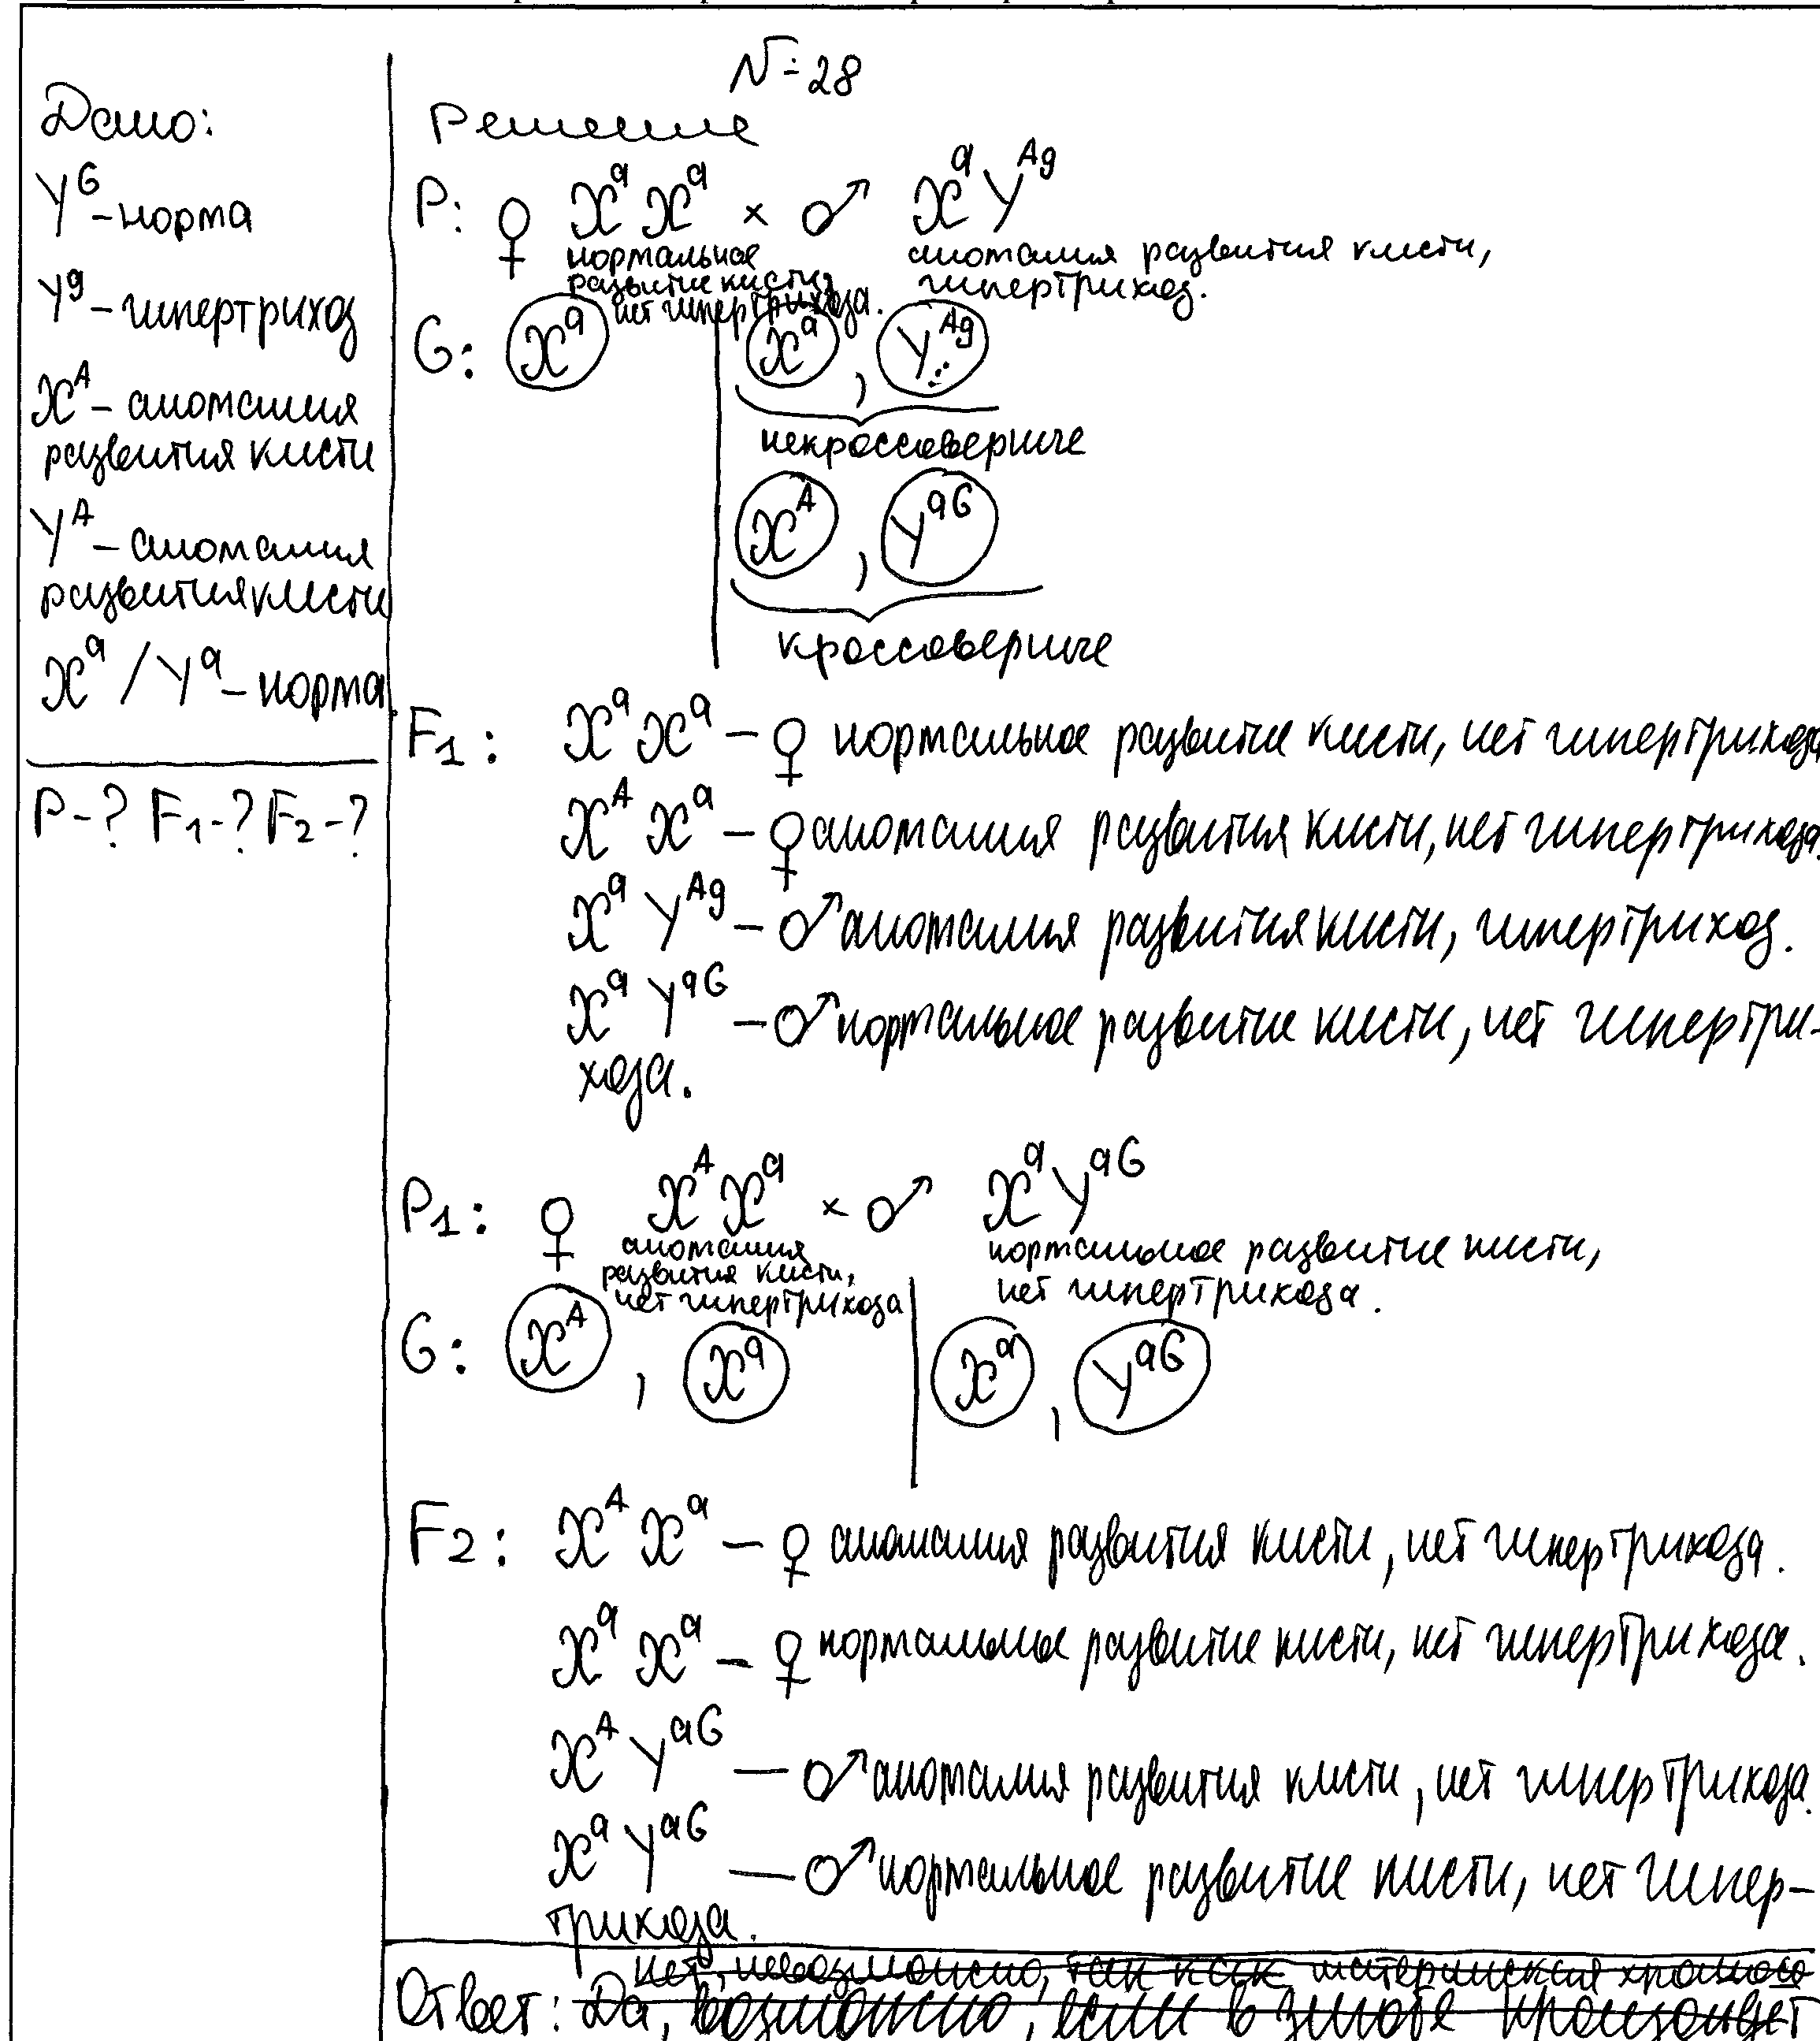 №28
Дано:
Y^G – норма
Y^g – гипертрихоз
X^A – аномалия
развития кисти
Y^A – аномалия
развития кисти
X^a / Y^a – норма
P-? F₁-? F₂-?
Решение
P: ♀ X^a X^a × ♂ X^a Y^Ag
нормальное
развитие кисти,
нет гипертрихоза.
аномалия развития кисти,
гипертрихоз.
G: X^a | X^a , Y^Ag
некроссоверные
X^A , Y^aG
кроссоверные
F₁: X^a X^a – ♀ нормальное развитие кисти, нет гипертрихоза
X^A X^a – ♀ аномалия развития кисти, нет гипертрихоза.
X^a Y^Ag – ♂ аномалия развития кисти, гипертрихоз.
X^a Y^aG – ♂ нормальное развитие кисти, нет гипертри-
хоза.
P₁: ♀ X^A X^a × ♂ X^a Y^aG
аномалия
развития кисти,
нет гипертрихоза
нормальное развитие кисти,
нет гипертрихоза.
G: X^A , X^a | X^a , Y^aG
F₂: X^A X^a – ♀ аномалия развития кисти, нет гипертрихоза.
X^a X^a – ♀ нормальное развитие кисти, нет гипертрихоза.
X^A Y^aG – ♂ аномалия развития кисти, нет гипертрихоза.
X^a Y^aG – ♂ нормальное развитие кисти, нет гипер-
трихоза.
нет, невозможно, так как материнская хромосо
Ответ: Да, возможно, если в зиготе произойдет